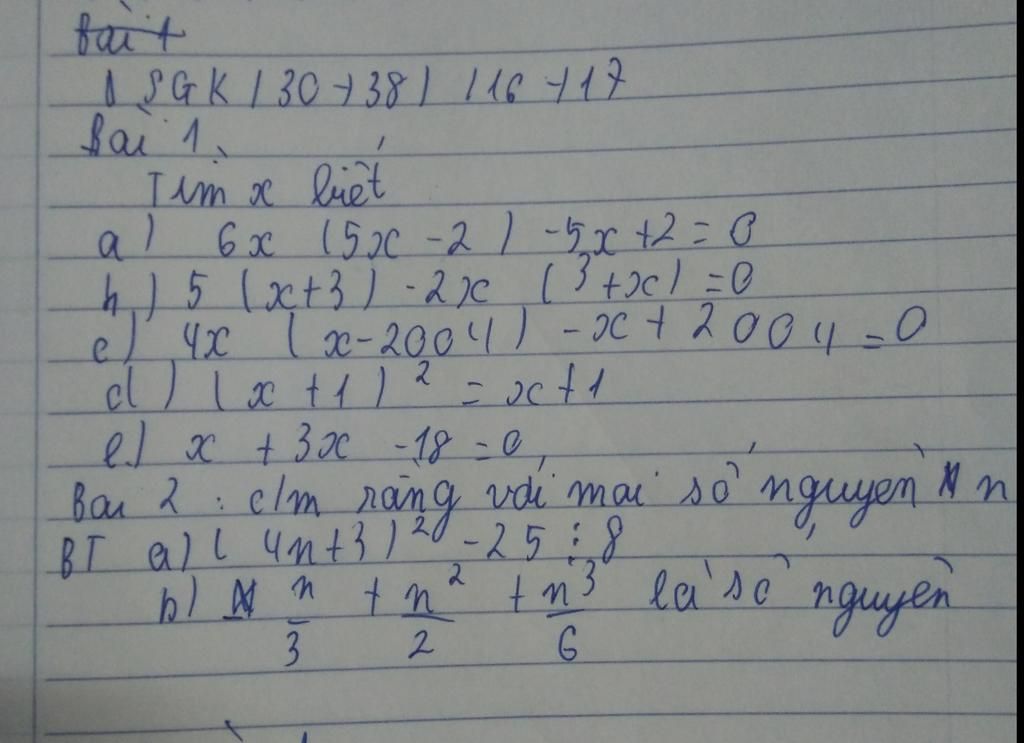 Bài 1
1 SGK (30→38) (16→17
Bài 1.
Tìm x biết
a) 6x (5x - 2) - 5x + 2 = 0
b) 5 (x+3) - 2x (3+x) = 0
c) 4x (x-2004) - x + 2004 = 0
d) (x + 1)² = x + 1
e) x + 3x - 18 = 0
Bài 2 : c/m rằng với mọi số nguyên n
BT a) (4n+3)² - 25 ⋮ 8
b) n/3 + n²/2 + n³/6 là số nguyên